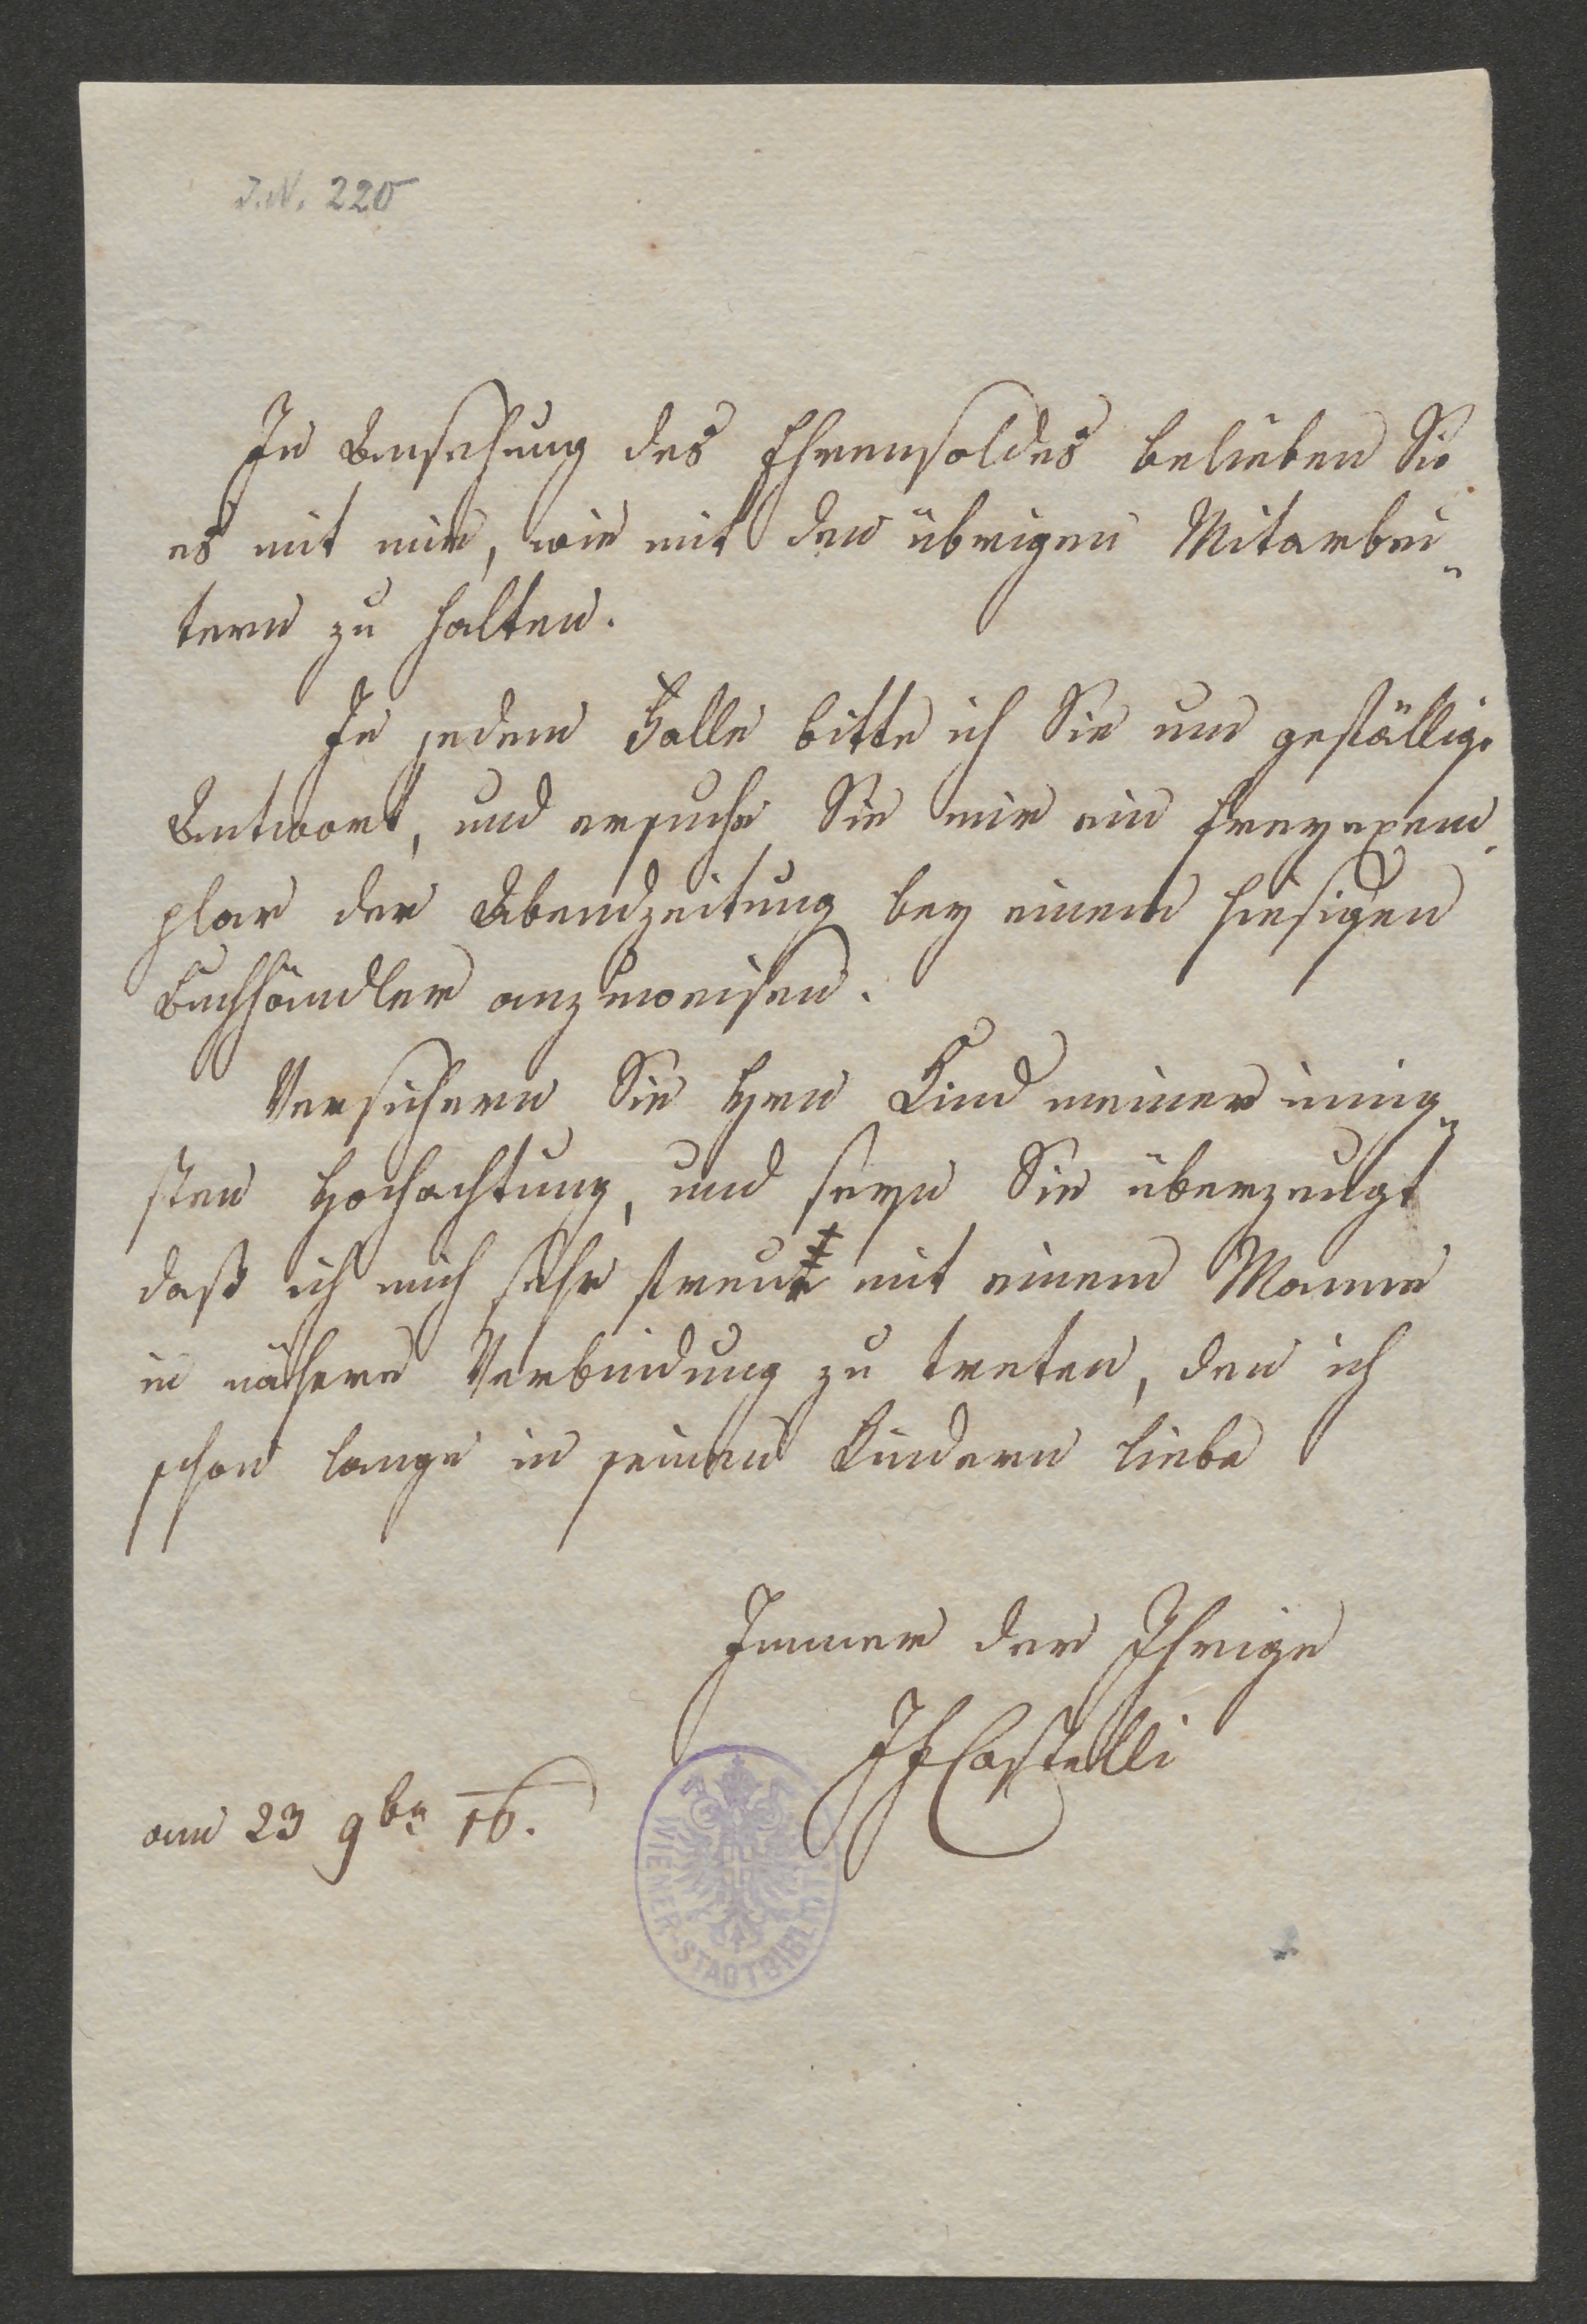 J.N. 220
In Ansehung des Ehrensoldes belieben Sie
es mit mir, wie mit den übrigen Mitarbei„
tern zu halten.
In jedem Falle bitte ich Sie um gefällige
Antwort, und ersuche Sie mir ein Freyexem„
plar der Abendzeitung bey einem hiesigen
Buchhändler anzuweisen.
Versichern Sie Hrn Kind meiner innig„
sten Hochachtung, und seyn Sie überzeugt
daß ich mich sehr freue mit einem Manne
in nähere Verbindung zu treten, den ich
schon lange in seinen Kindern liebe
Immer der Ihrige
JFCastelli
am 23 9br 16.
WIENER-STADTBIBLIOT